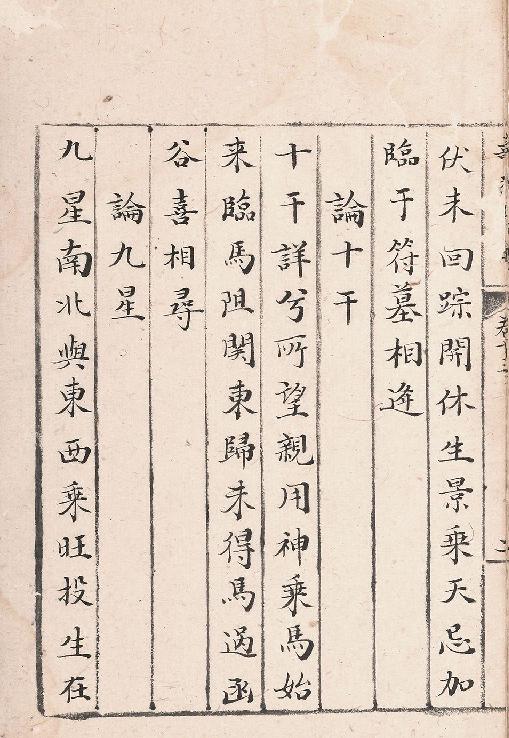 伏未回踪開休生景乘天忌加
臨于符墓相逄
論十干
十干詳兮所望親用神乘馬始
来臨馬阻関東歸未得馬過函
谷喜相尋
論九星
九星南北與東西乘旺投生在